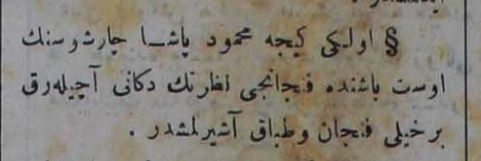 § اولكی كیجه محمود پاشا چارشوسنك
اوست باشنده فنجانجی نظرتك دكانی آچیله‌رق
برخیلی فنجان وطباق آشیرلمشدر .